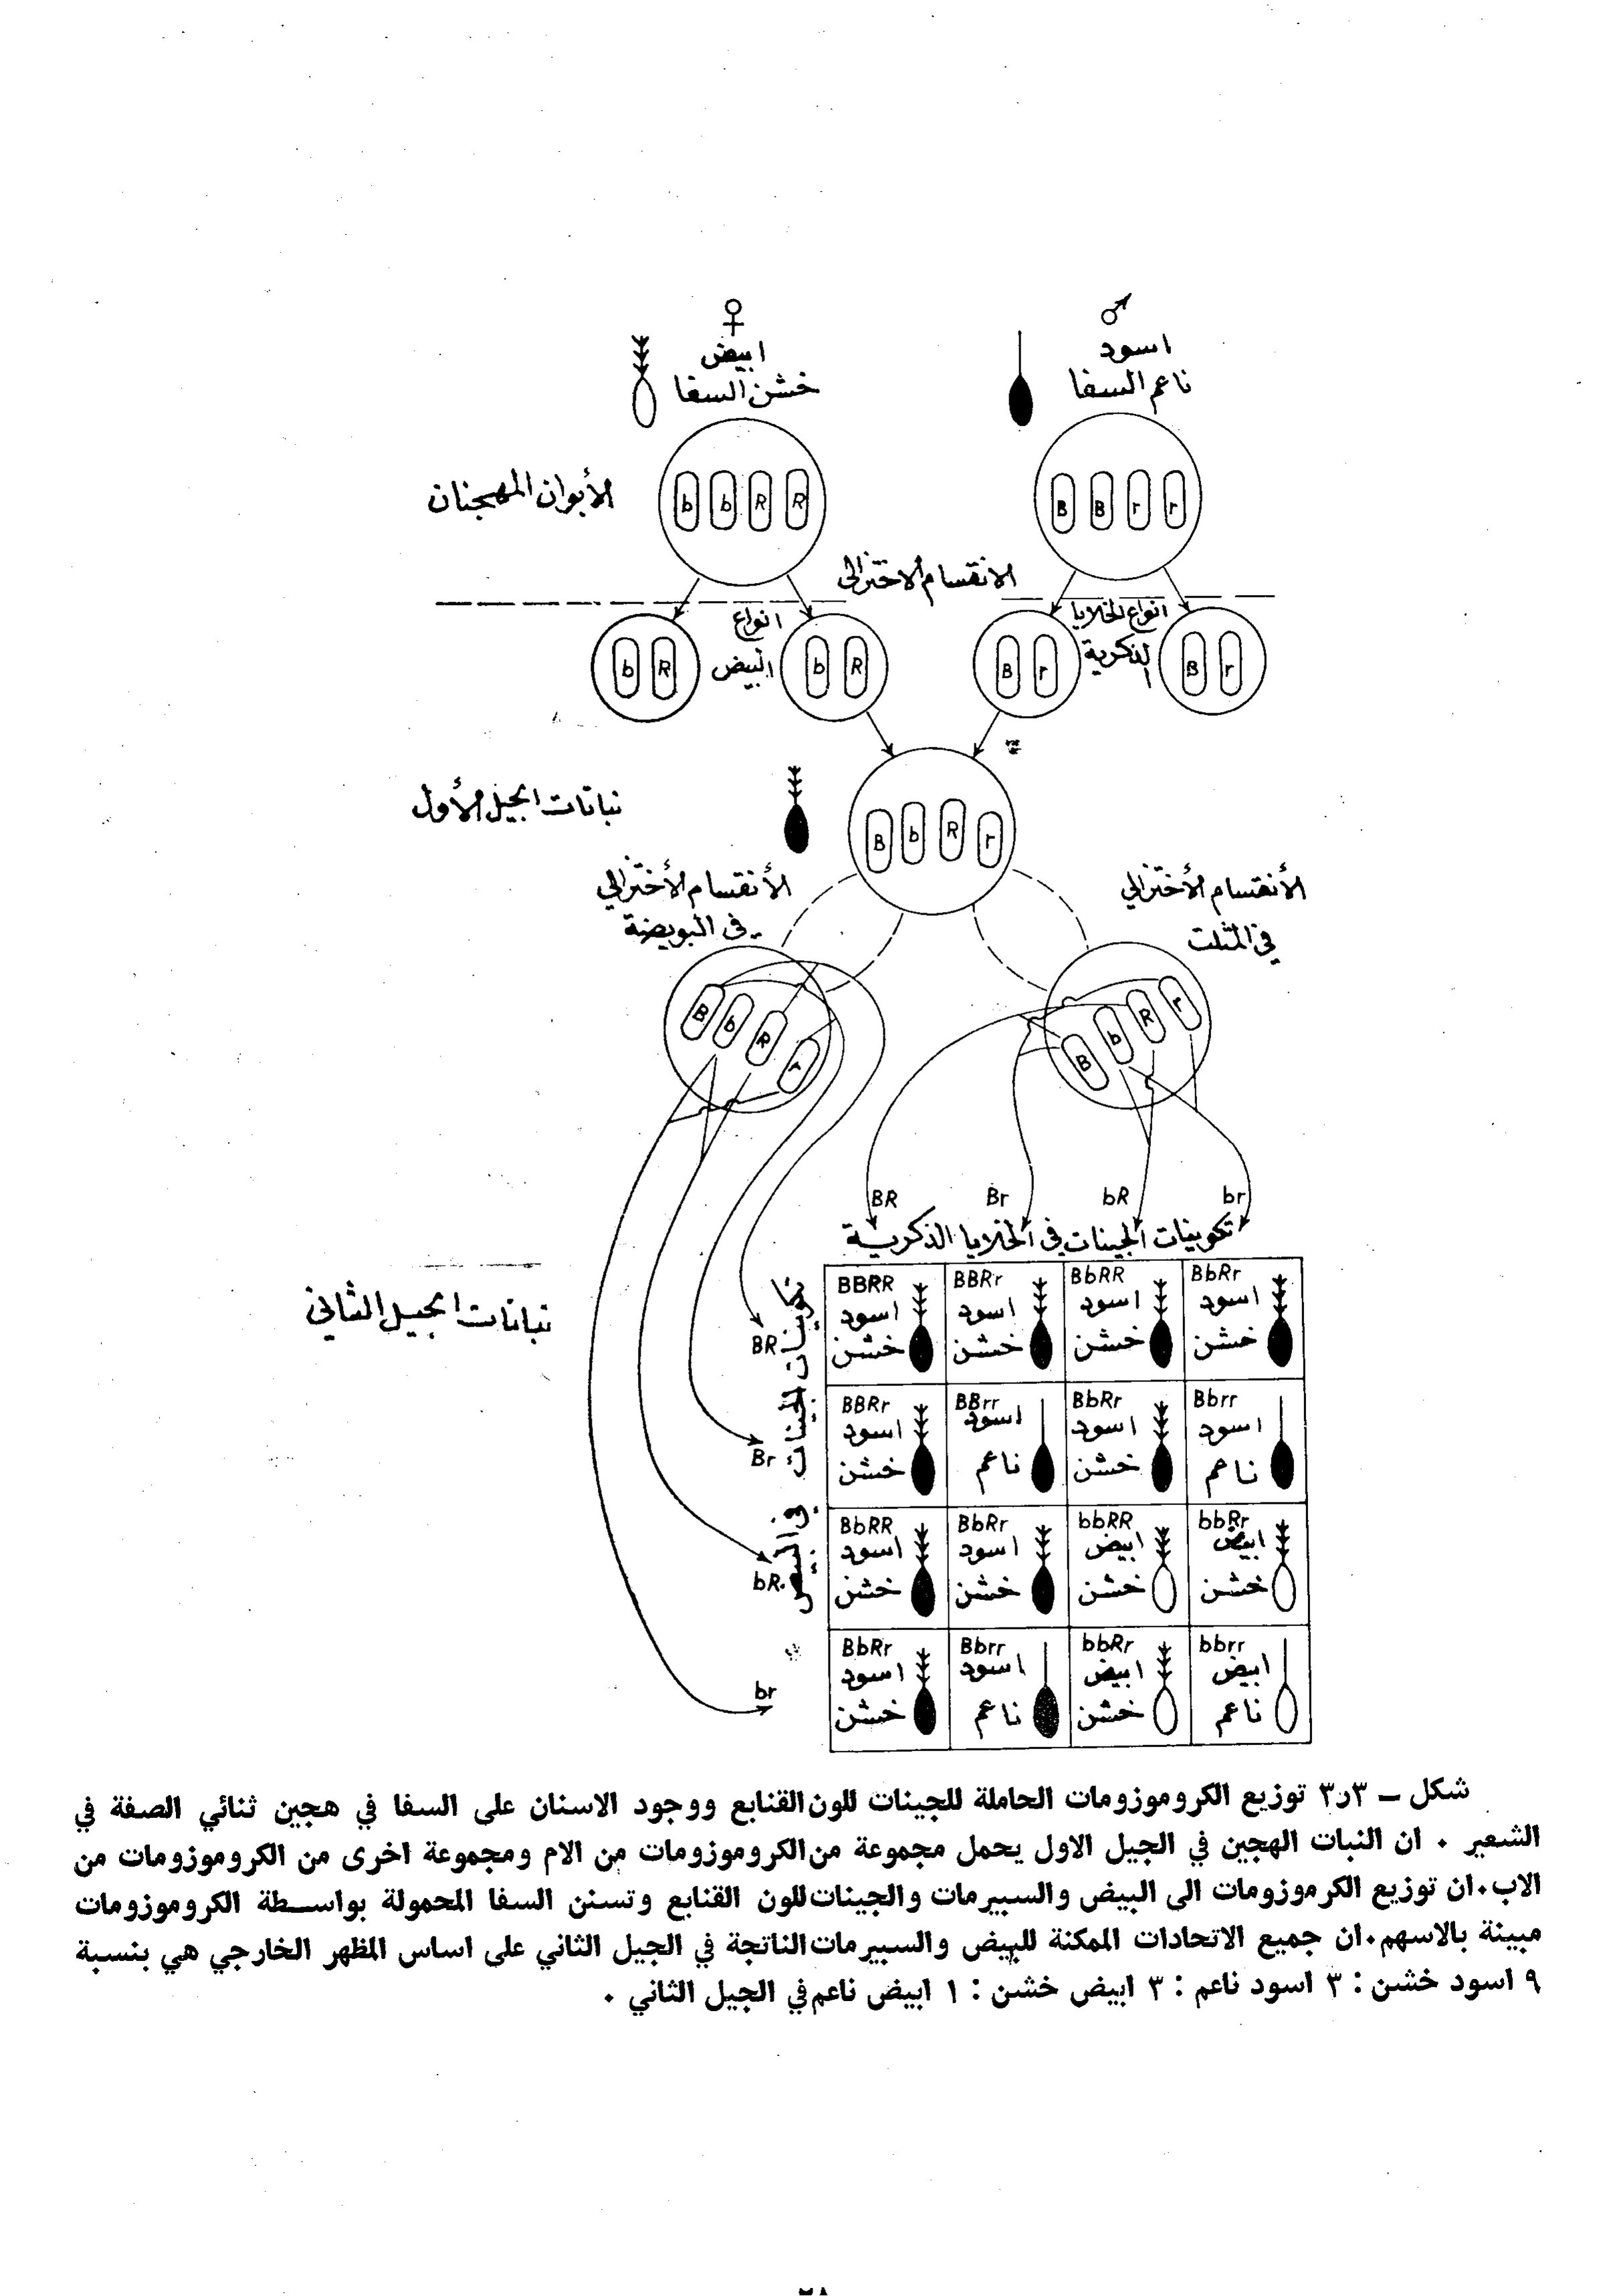 ♀ ♂
ابيض
خشن السفا
اسود
ناعم السفا
الأبوان المهجنان
b b R R
B B r r
الانقسام الاختزالي
انواع
البيض
انواع الخلايا
الذكرية
b R
b R
B r
B r
نباتات الجيل الأول
B b R r
الأنقسام الأختزالي
في البويضة
الأنقسام الأختزالي
في المثلت
B b R r
B b R r
BR Br bR br
تكوينات الجينات في الخلايا الذكرية
نباتات الجيل الثاني
تكوينات الجينات في البيض
BR
BBRR BBRr BbRR BbRr
اسود اسود اسود اسود
خشن خشن خشن خشن
Br
BBRr BBrr BbRr Bbrr
اسود اسود اسود اسود
خشن ناعم خشن ناعم
bR
BbRR BbRr bbRR bbRr
اسود اسود ابيض ابيض
خشن خشن خشن خشن
br
BbRr Bbrr bbRr bbrr
اسود اسود ابيض ابيض
خشن ناعم خشن ناعم
شكل – ٣ر٣ توزيع الكروموزومات الحاملة للجينات للون القنابع ووجود الاسنان على السفا في هجين ثنائي الصفة في
الشعير . ان النبات الهجين في الجيل الاول يحمل مجموعة من الكروموزومات من الام ومجموعة اخرى من الكروموزومات من
الاب.ان توزيع الكرموزومات الى البيض والسبيرمات والجينات للون القنابع وتسنن السفا المحمولة بواسطة الكروموزومات
مبينة بالاسهم.ان جميع الاتحادات الممكنة للبيض والسبيرمات الناتجة في الجيل الثاني على اساس المظهر الخارجي هي بنسبة
٩ اسود خشن : ٣ اسود ناعم : ٣ ابيض خشن : ١ ابيض ناعم في الجيل الثاني .